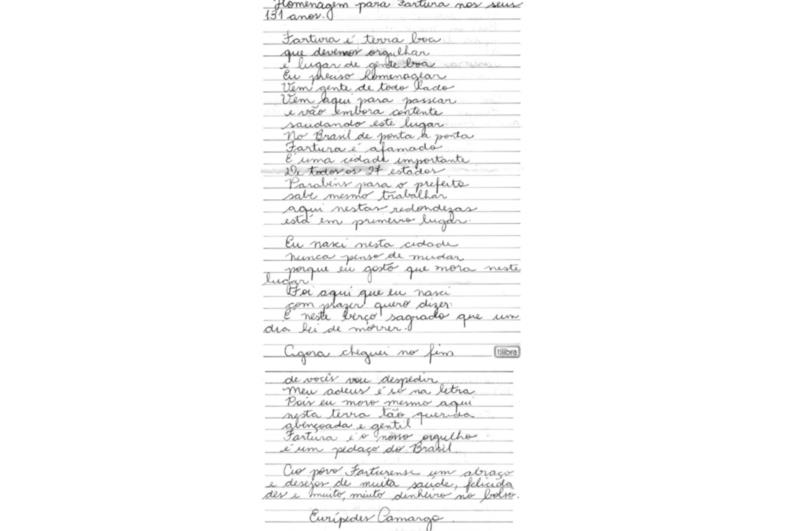 Homenagem para Fartura nos seus
131 anos.
Fartura é terra boa
que devemos orgulhar
é lugar de gente boa
Eu preciso homenagear
Vem gente de todo lado
Vem aqui para passear
e vão embora contente
saudando este lugar
No Brasil de ponta a ponta
Fartura é afamado
É uma cidade importante
De todos os 27 estados
Parabéns para o prefeito
sabe mesmo trabalhar
aqui nestas redondezas
está em primeiro lugar.
Eu nasci nesta cidade
nunca penso de mudar
porque eu gosto que mora neste
lugar
Foi aqui que eu nasci
com prazer quero dizer
É neste berço sagrado que um
dia lei de morrer.
Agora cheguei no fim
tilibra
de vocês vou despedir
Meu adeus é só na letra
Pois eu moro mesmo aqui
nesta terra tão querida
abençoada e gentil
Fartura é o nosso orgulho
é um pedaço do Brasil.
Ao povo Farturense um abraço
e desejos de muita saúde, felicida
des e muito, muito dinheiro no bolso.
Eurípedes Camargo